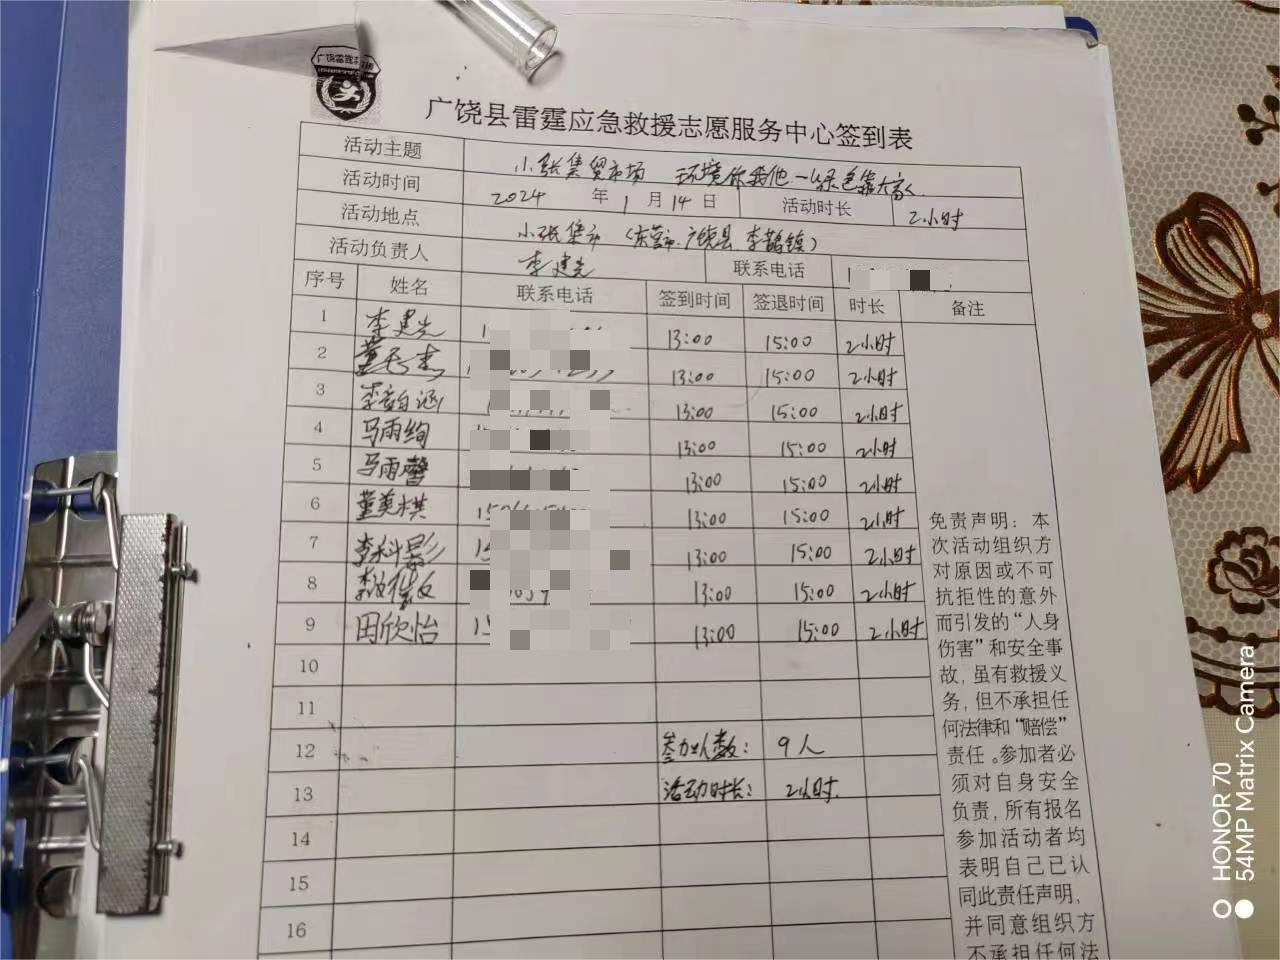 广饶县雷霆应急救援志愿服务中心签到表
活动主题 小张集贸市场 环境你我他 一绿色靠大家
活动时间 2024 年 1 月 14 日 活动时长 2小时
活动地点 小张集市(东营市.广饶县 李鹊镇)
活动负责人 李建光 联系电话
序号 姓名 联系电话 签到时间 签退时间 时长 备注
1 李建光 13:00 15:00 2小时
2 13:00 15:00 2小时
3 13:00 15:00 2小时
4 马雨绚 13:00 15:00 2小时
5 马雨馨 13:00 15:00 2小时
6 董美棋 13:00 15:00 2小时
7 李科影 13:00 15:00 2小时
8 13:00 15:00 2小时
9 田欣怡 13:00 15:00 2小时
10
11
12 参加人数: 9人
13 活动时长: 2小时.
14
15
16
免责声明:本
次活动组织方
对原因或不可
抗拒性的意外
而引发的“人身
伤害”和安全事
故,虽有救援义
务,但不承担任
何法律和“赔偿”
责任。参加者必
须对自身安全
负责,所有报名
参加活动者均
表明自己已认
同此责任声明,
并同意组织方
不承担任何法
HONOR 70
54MP Matrix Camera